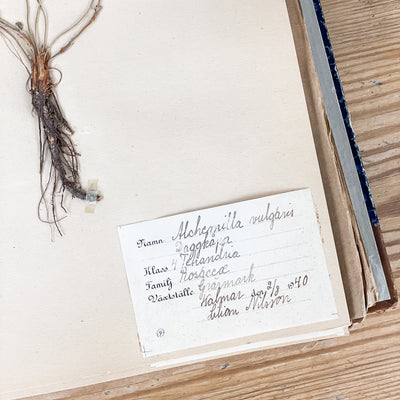 Namn Alchemilla vulgaris
Daggkåpa
Klass 4 Tetrandria
Familj Rosaceæ
Växtställe Gräsmark
Kalmar den 2/8 1940
Nilsson